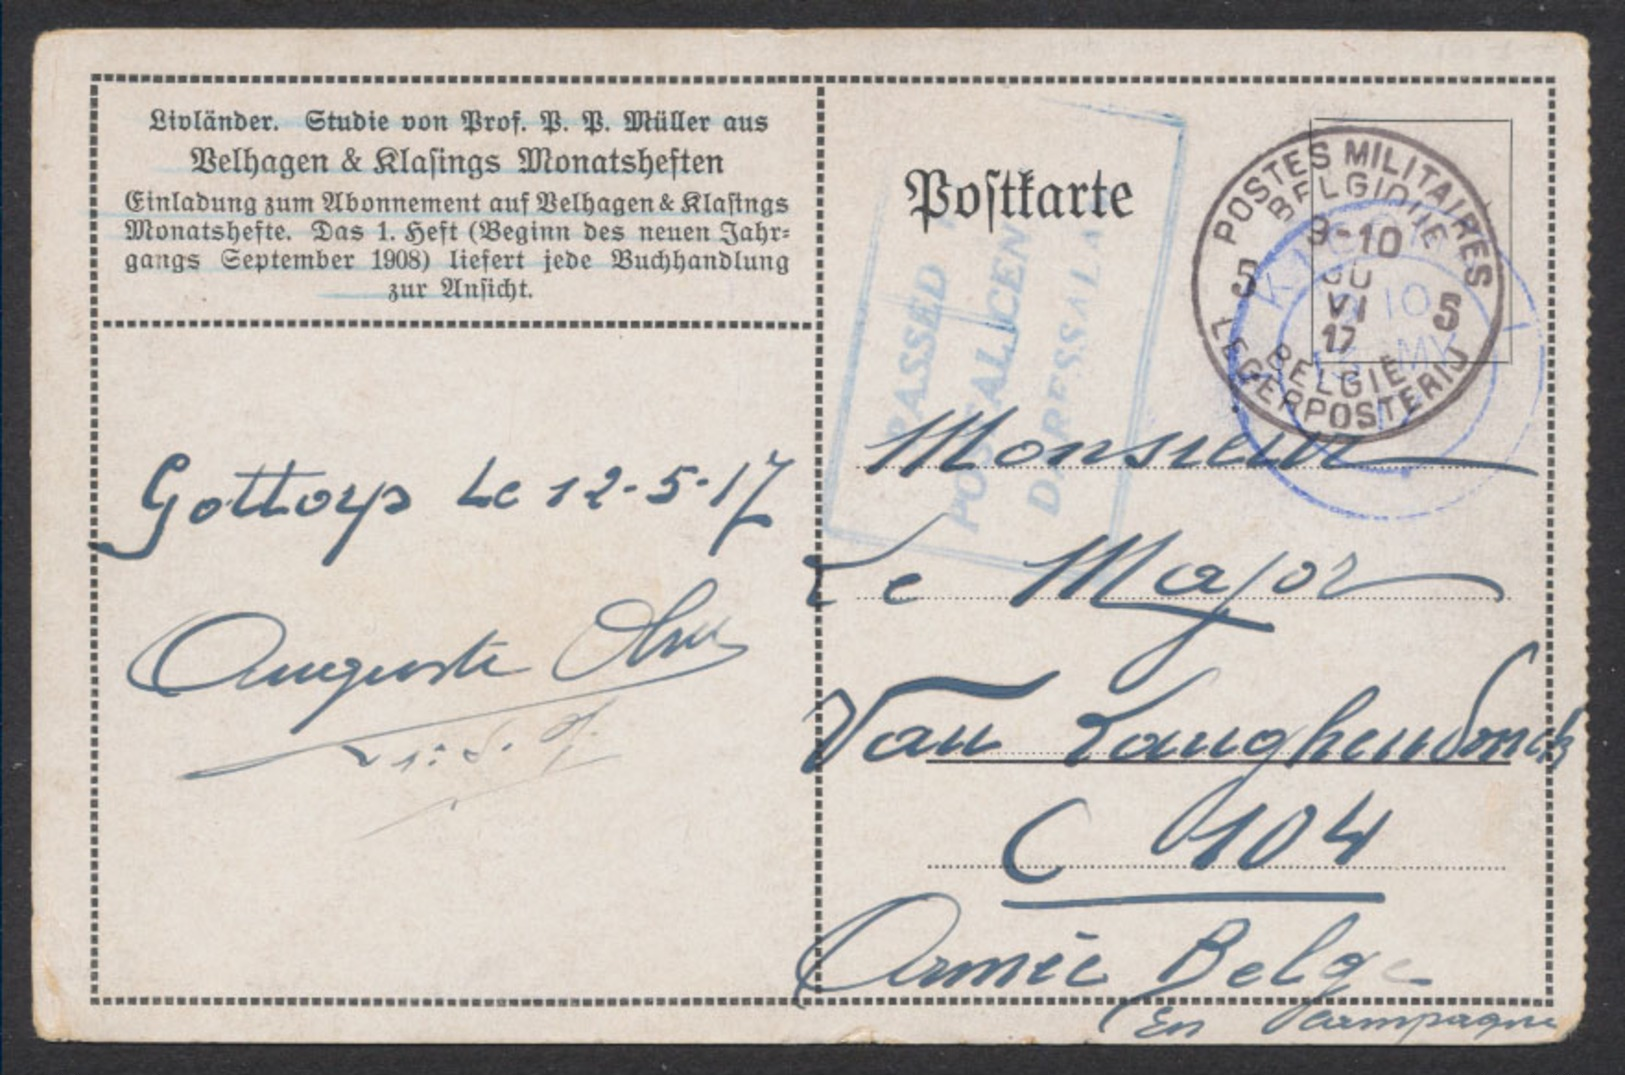 Livländer. Studie von Prof. P. P. Müller aus
Velhagen & Klasings Monatsheften
Einladung zum Abonnement auf Velhagen & Klasings
Monatshefte. Das 1. Heft (Beginn des neuen Jahr-
gangs September 1908) liefert jede Buchhandlung
zur Ansicht.
Postkarte
PASSED
POSTAL CEN
DARESSALA
POSTES MILITAIRES
BELGIQUE
9-10
VI
17
5 5
BELGIË
LEGERPOSTERIJ
Gottorp Le 12-5-17
Auguste
Monsieur
Le Major
Van Langhendonck
C 104
Armée Belge
En Campagne